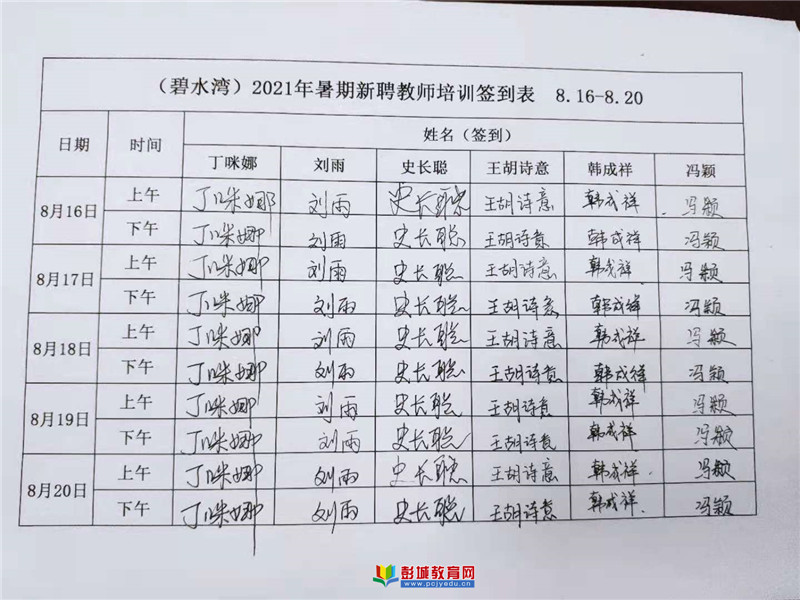 （碧水湾）2021年暑期新聘教师培训签到表 8.16-8.20
日期 时间 姓名（签到）
丁咪娜 刘雨 史长聪 王胡诗意 韩成祥 冯颖
8月16日 上午 丁咪娜 刘雨 史长聪 王胡诗意 韩成祥 冯颖
下午 丁咪娜 刘雨 史长聪 王胡诗意 韩成祥 冯颖
8月17日 上午 丁咪娜 刘雨 史长聪 王胡诗意 韩成祥 冯颖
下午 丁咪娜 刘雨 史长聪 王胡诗意 韩成祥 冯颖
8月18日 上午 丁咪娜 刘雨 史长聪 王胡诗意 韩成祥 冯颖
下午 丁咪娜 刘雨 史长聪 王胡诗意 韩成祥 冯颖
8月19日 上午 丁咪娜 刘雨 史长聪 王胡诗意 韩成祥 冯颖
下午 丁咪娜 刘雨 史长聪 王胡诗意 韩成祥 冯颖
8月20日 上午 丁咪娜 刘雨 史长聪 王胡诗意 韩成祥 冯颖
下午 丁咪娜 刘雨 史长聪 王胡诗意 韩成祥 冯颖
彭城教育网
www.pcjyedu.cn